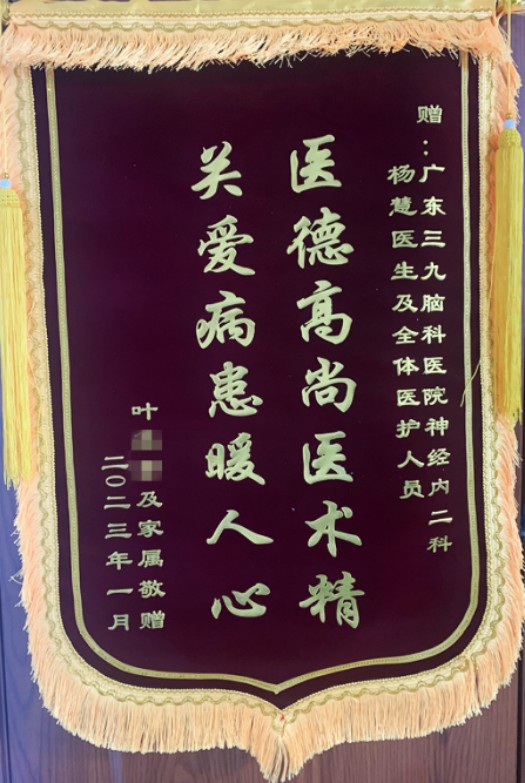 赠：广东三九脑科医院神经内二科
杨慧医生及全体医护人员
医德高尚医术精
关爱病患暖人心
叶
及家属敬赠
二〇二三年一月